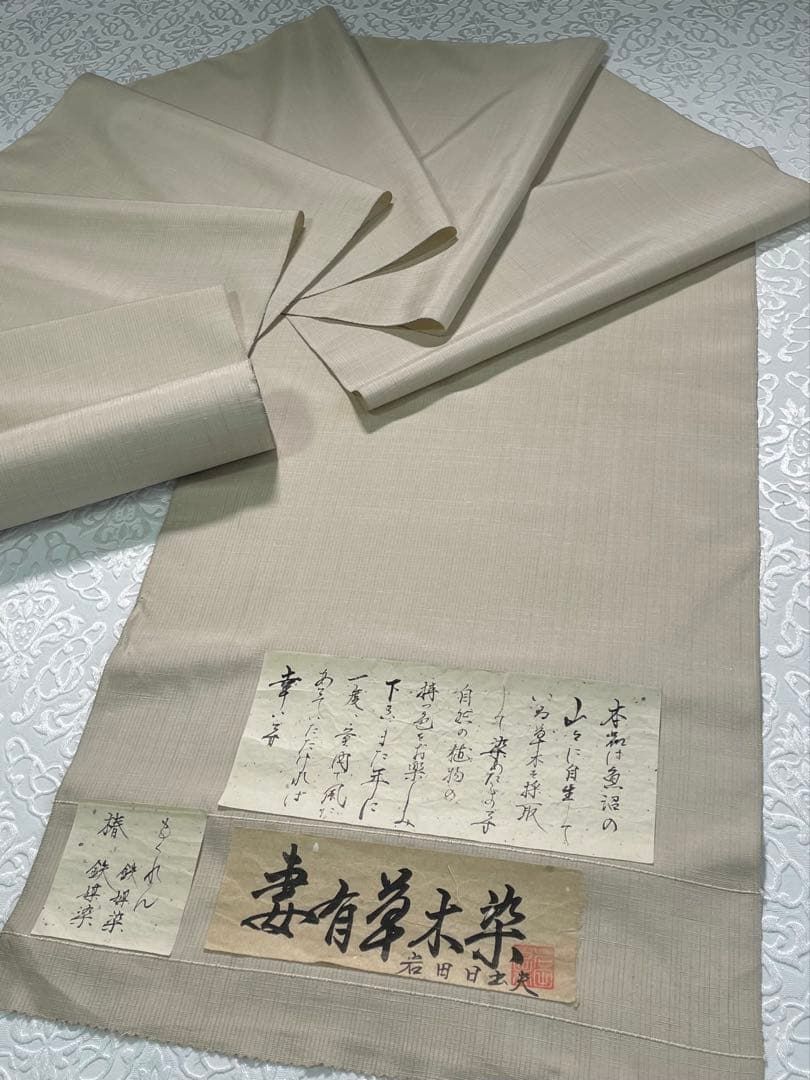 本品は魚沼の
山々に自生して
いる草木を採取
して染めたもので
自然の植物の
持つ色をお楽しみ
下さいまた年に
一度、室内で風に
あてていただければ
幸いです
妻有草木染
岩田日出夫
もくれん 鉄媒染
椿 鉄媒染